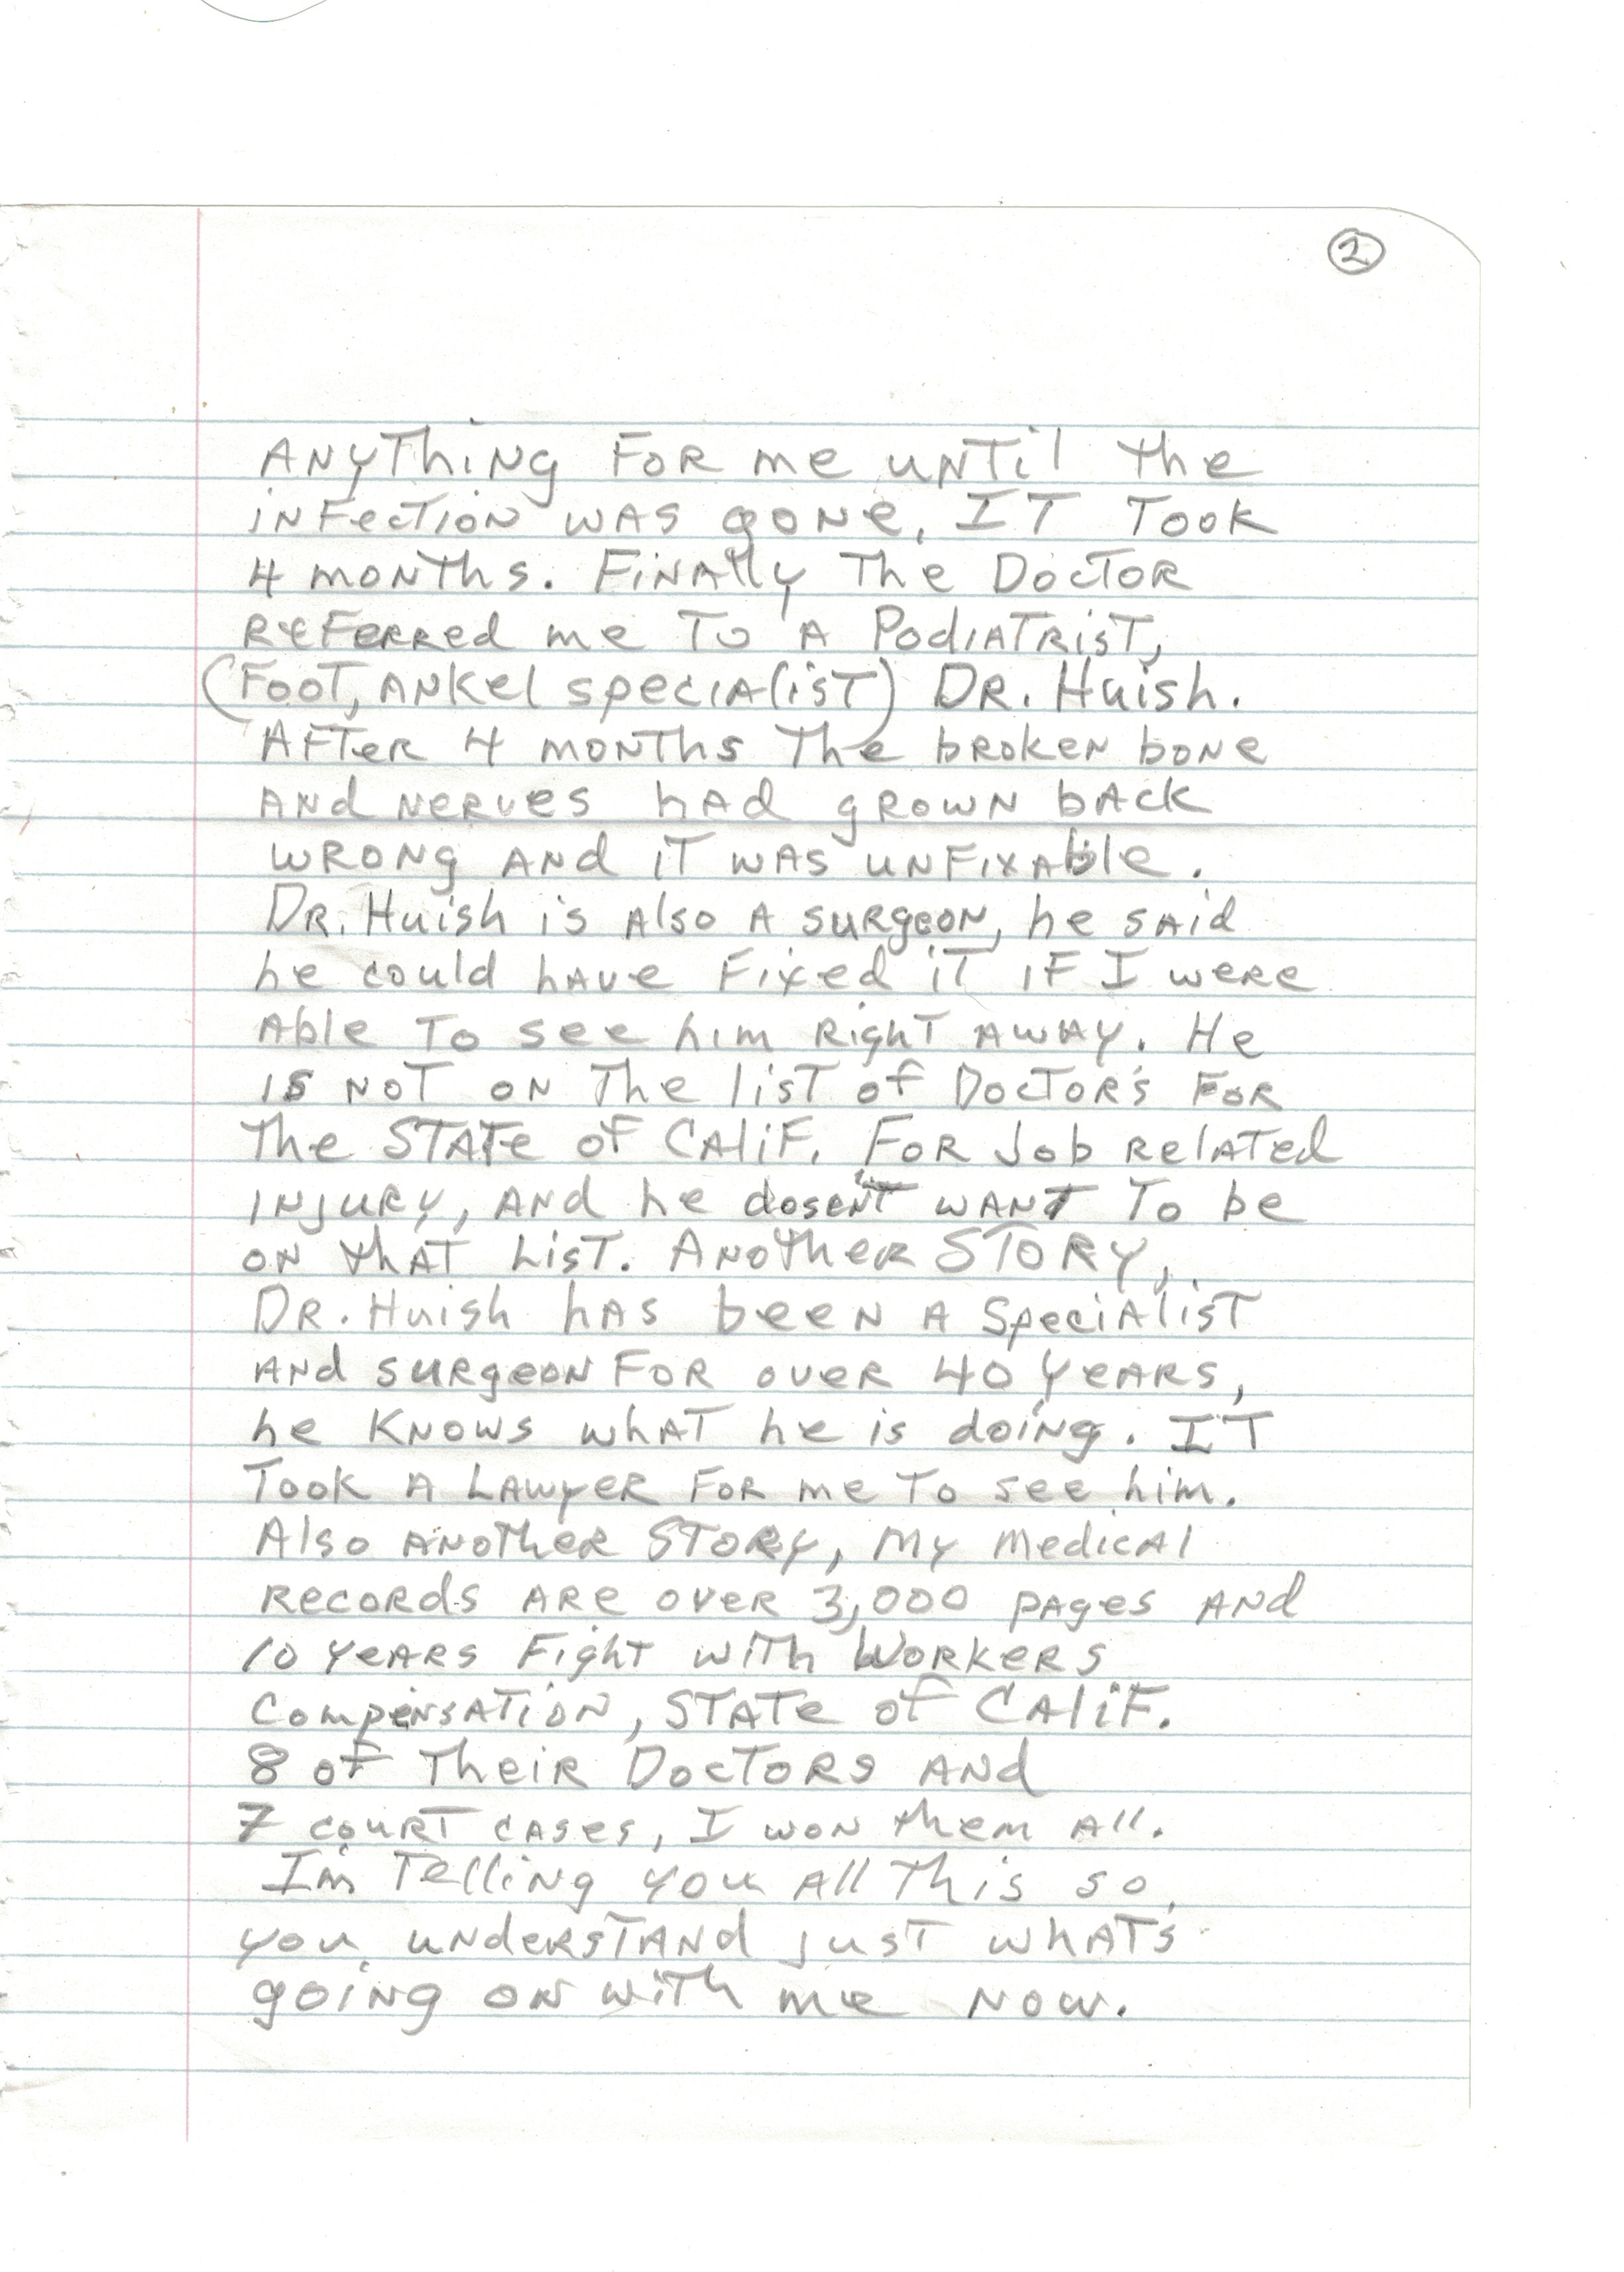 2
Anything for me until the
infection was gone, It took
4 months. Finally the Doctor
referred me to a Podiatrist,
(Foot, Ankel specialist) Dr. Huish.
After 4 months the broken bone
and nerves had grown back
wrong and it was unfixable.
Dr. Huish is also a surgeon, he said
he could have fixed it if I were
able to see him right away. He
is not on the list of Doctor's for
the State of Calif. For Job related
injury, and he dosen't want to be
on that List. Another Story,
Dr. Huish has been a specialist
and surgeon for over 40 years,
he knows what he is doing. It
Took a Lawyer for me to see him.
Also another Story, my medical
records are over 3,000 pages and
10 years Fight with Workers
Compensation, State of Calif.
8 of Their Doctors and
7 court cases, I won them all.
I'm Telling you all this so
you understand just what's
going on with me now.